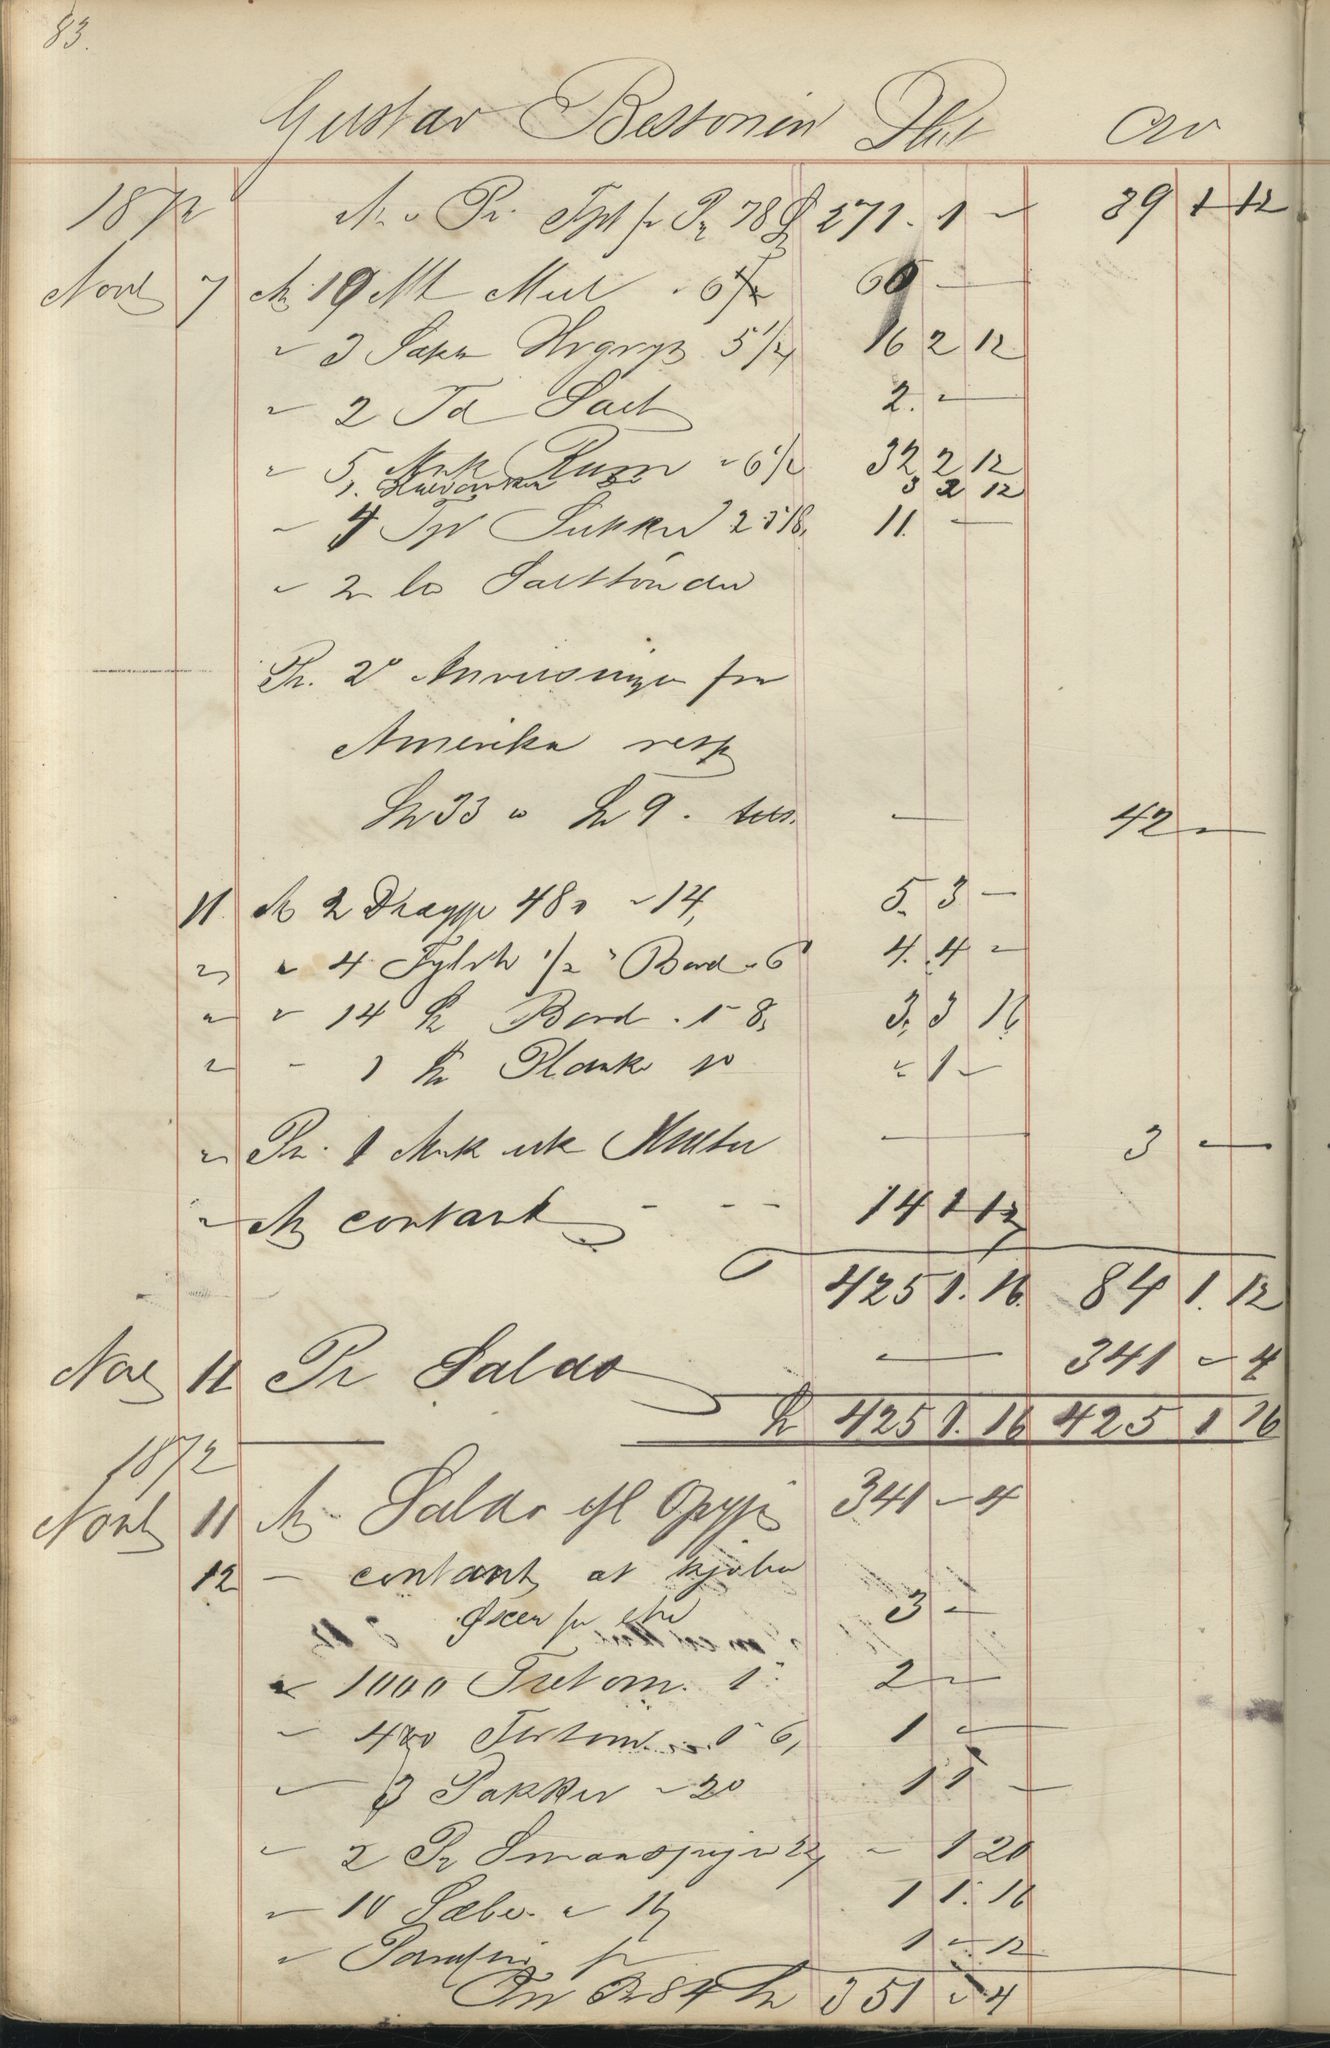 83.
Gustav Bessonin Debt Crv
1872 An & Pr. Tpt fr Pr 78 271. 1 " 39 1 12
Novb 7 An 19 Mt Meel " 6 60 —
" 3 Sække Hvgryn 5 1/4 16 2 12
" 2 Td Salt 2. —
" 5 Ank Rum " 6 1/2 32 2 12
1. Halvanker 3 2 12
" 4 Top Sukker 11 —
" 2 to Salttönder
Pr. 2 Anvisninger fra
Amerika resp
33 & 9. — 42 —
11 An 2 Dragge 48 " 14, 5. 3 —
" " 4 Tylvt 1/2 " Bord " 6 4. 4 "
" " 14 Bord . 1 " 8, 3. 3 16
" " 1 Planke " 1 "
" Pr. 1 Ank Multer — 3 —
" An contant - - - 14 1 12
425 1. 16. 84 1. 12
Nov 11 Pr Saldo — 341 " 4
425 1. 16 425 1 16
1872
Novb 11 An Saldo 341 " 4
12 — contant at kjøbe
for 3 "
" 1000 Tretom. 1 " 2 "
" 400 Firtom. 1 " 6, 1 —
" 3 Pakker " 20 1 1 —
" 2 Pr 22, " 1 20
" 10 Sæbe " 16 1 1. 16
" Parafin 1 " 12
Tr Pr 84 351 " 4